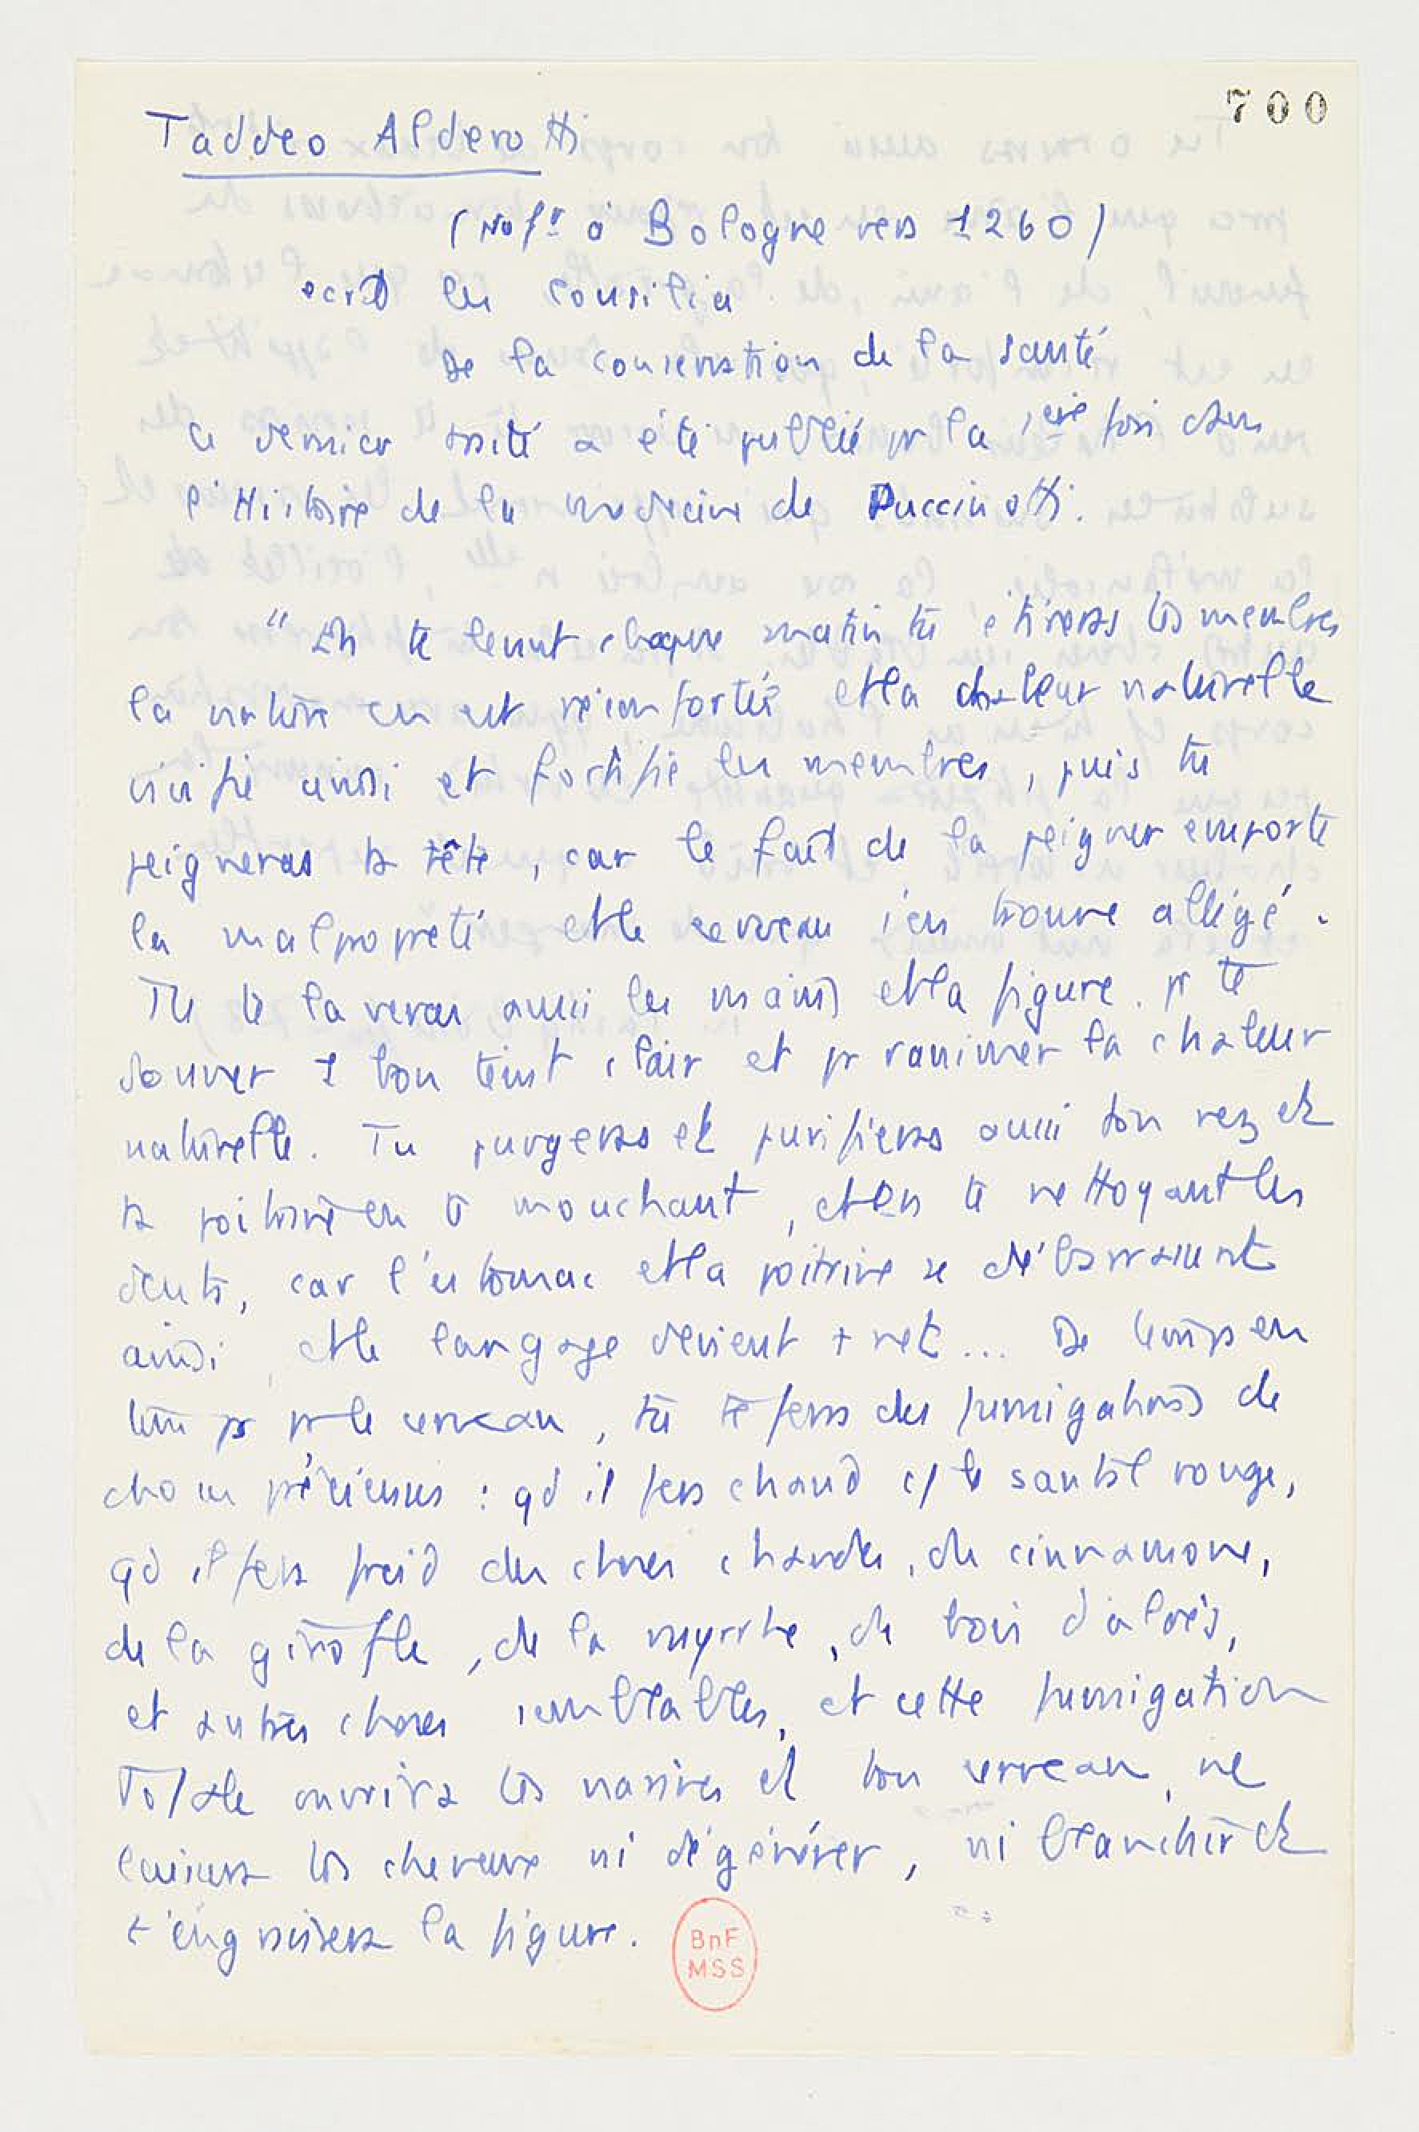 700
Taddeo Alderotti
(Profr à Bologne vers 1260)
écrit les Consilia
De la conservation de la santé
Ce dernier traité a été publié pr la 1ère fois dans
l'Histoire de la médecine de Puccinotti.
"En te levant chaque matin tu étireras tes membres
la nature en est réconfortée et la chaleur naturelle
vivifie ainsi et fortifie les membres, puis tu
peigneras ta tête, car le fait de la peigner emporte
la malpropreté et le cerveau s'en trouve allégé.
Tu te laveras aussi les mains et la figure pr te
donner 1 bon teint clair et pr ranimer la chaleur
naturelle. Tu purgeras et purifieras aussi ton nez et
ta poitrine en te mouchant, et en te nettoyant les
dents, car l'estomac et la poitrine se débarrassent
ainsi, et le langage devient + net... De temps en
temps pr le cerveau, tu te feras des fumigations de
choses précieuses : qd il fera chaud c/ le santal rouge,
qd il fera froid des choses chaudes, du cinnamone,
de la girofle, de la myrrhe, du bois d'aloès,
et autres choses semblables, et cette fumigation
totale ouvrira tes narines et ton cerveau, ne
laissera tes cheveux ni dégénérer, ni blanchir et
t'engraissera la figure.
BnF
MSS